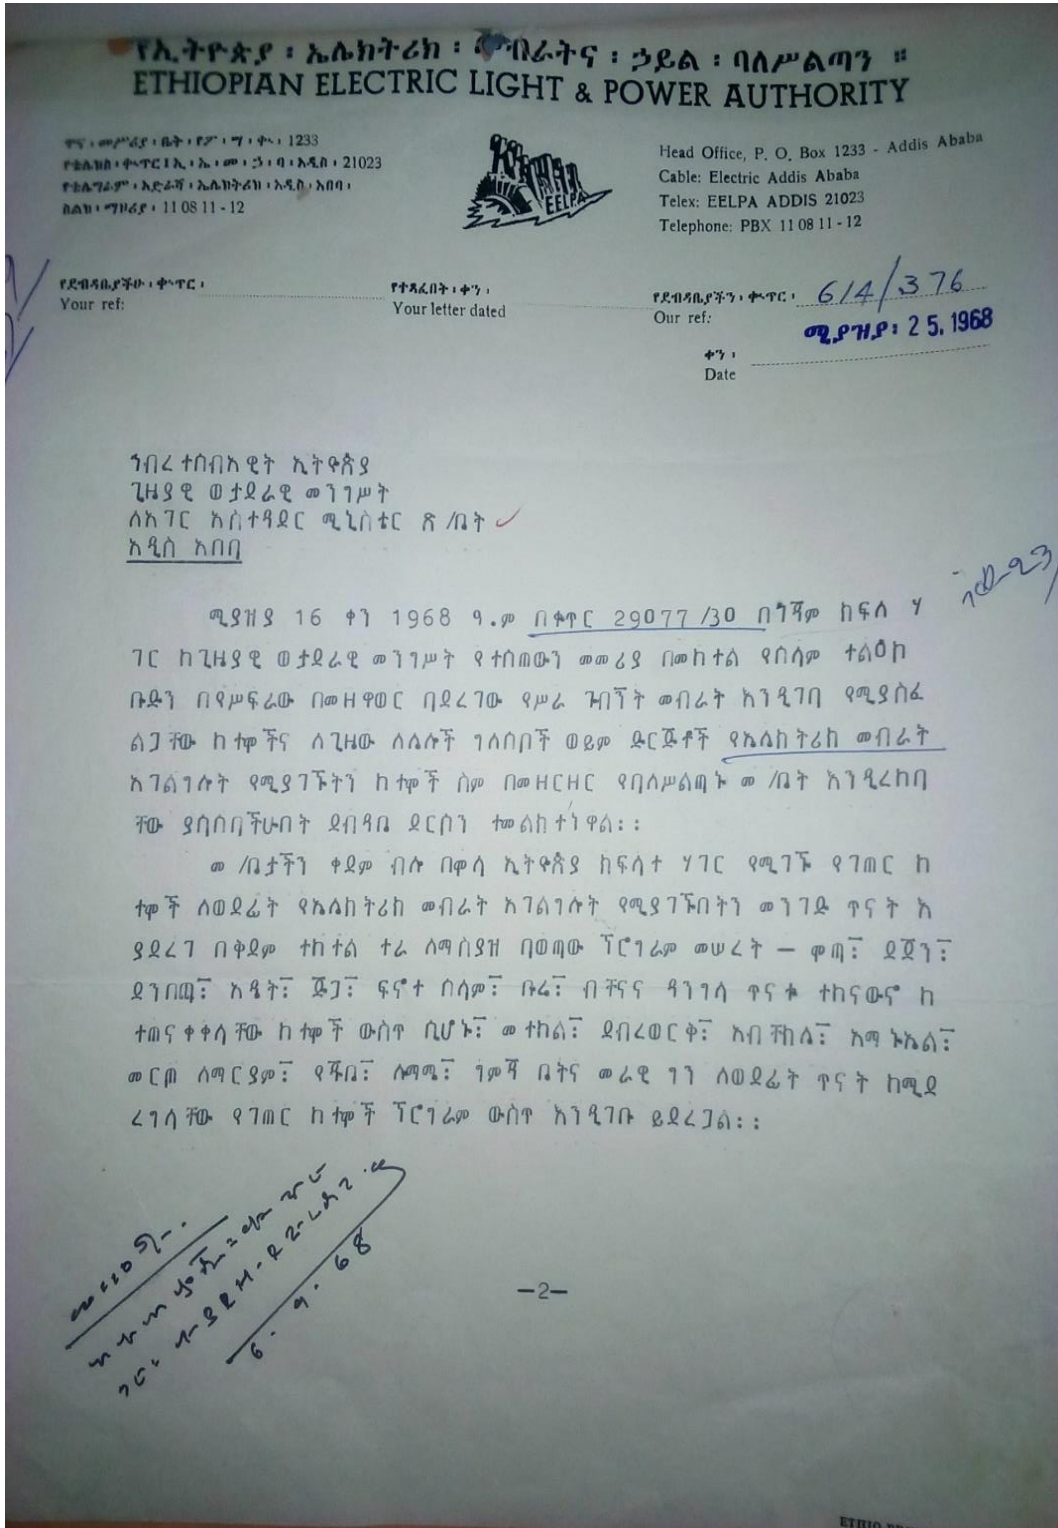 የኢትዮጵያ ፡ ኤሌክትሪክ ፡ መብራትና ፡ ኃይል ፡ ባለሥልጣን ።
ETHIOPIAN ELECTRIC LIGHT & POWER AUTHORITY
ዋና ፡ መሥሪያ ፡ ቤት ፡ የፖ ፡ ማ ፡ ቍ ፡ 1233
የቴሌክስ ፡ ቍጥር ፡ ኢ ፡ ኤ ፡ መ ፡ ኃ ፡ ባ ፡ አዲስ ፡ 21023
የቴሌግራም ፡ አድራሻ ፡ ኤሌክትሪክ ፡ አዲስ ፡ አበባ ፡
ስልክ ፡ ማዞሪያ ፡ 11 08 11 - 12
EELPA
Head Office, P. O. Box 1233 - Addis Ababa
Cable: Electric Addis Ababa
Telex: EELPA ADDIS 21023
Telephone: PBX 11 08 11 - 12
የደብዳቤያችሁ ፡ ቍጥር ፡
Your ref:
የተጻፈበት ፡ ቀን ፡
Your letter dated
የደብዳቤያችን ፡ ቍጥር ፡ 6/4/376
Our ref:
ሚያዝያ፡ 25. 1968
ቀን ፡
Date
ኅብረተሰብአዊት ኢትዮጵያ
ጊዜያዊ ወታደራዊ መንግሥት
ለአገር አስተዳደር ሚኒስቴር ጽ/ቤት
አዲስ አበባ
ሚያዝያ 16 ቀን 1968 ዓ.ም በቁጥር 29077/30 በጎጃም ክፍለ ሃ
ገር ከጊዜያዊ ወታደራዊ መንግሥት የተሰጠውን መመሪያ በመከተል የሰላም ተልዕኮ
ቡድን በየሥፍራው በመዘዋወር ባደረገው የሥራ ጉብኘት መብራት እንዲገባ የሚያስፈ
ልጋቸው ከተሞችና ለጊዜው ለሌሎች ግለሰቦች ወይም ድርጅቶች የኤሌክትሪክ መብራት
አገልግሎት የሚያገኙትን ከተሞች ስም በመዘርዘር የባለሥልጣኑ መ/ቤት እንዲረከባ
ቸው ያሳሰባችሁበት ደብዳቤ ደርሶን ተመልክተነዋል፡፡
መ/ቤታችን ቀደም ብሎ በመላ ኢትዮጵያ ክፍላተ ሃገር የሚገኙ የገጠር ከ
ተሞች ለወደፊት የኤሌክትሪክ መብራት አገልግሎት የሚያገኙበትን መንገድ ጥናት እ
ያደረገ በቅደም ተከተል ተራ ለማስያዝ ባወጣው ፕሮግራም መሠረት — ሞጣ፣ ደጀን፣
ደንበጫ፣ እዴት፣ ጅጋ፣ ፍኖተ ሰላም፣ ቡሬ፣ ብቸናና ዳንግላ ጥናቱ ተከናውኖ ከ
ተጠናቀቀላቸው ከተሞች ውስጥ ሲሆኑ፣ መተከል፣ ደብረወርቅ፣ እብቸክሌ፣ አማኑኤል፣
መርጦ ለማርያም፣ የጁቤ፣ ሉማሜ፣ ገምጃ ቤትና መራዊ ግን ለወደፊት ጥናት ከሚደ
ረግላቸው የገጠር ከተሞች ፕሮግራም ውስጥ እንዲገቡ ይደረጋል፡፡
—2—
6. 9. 68